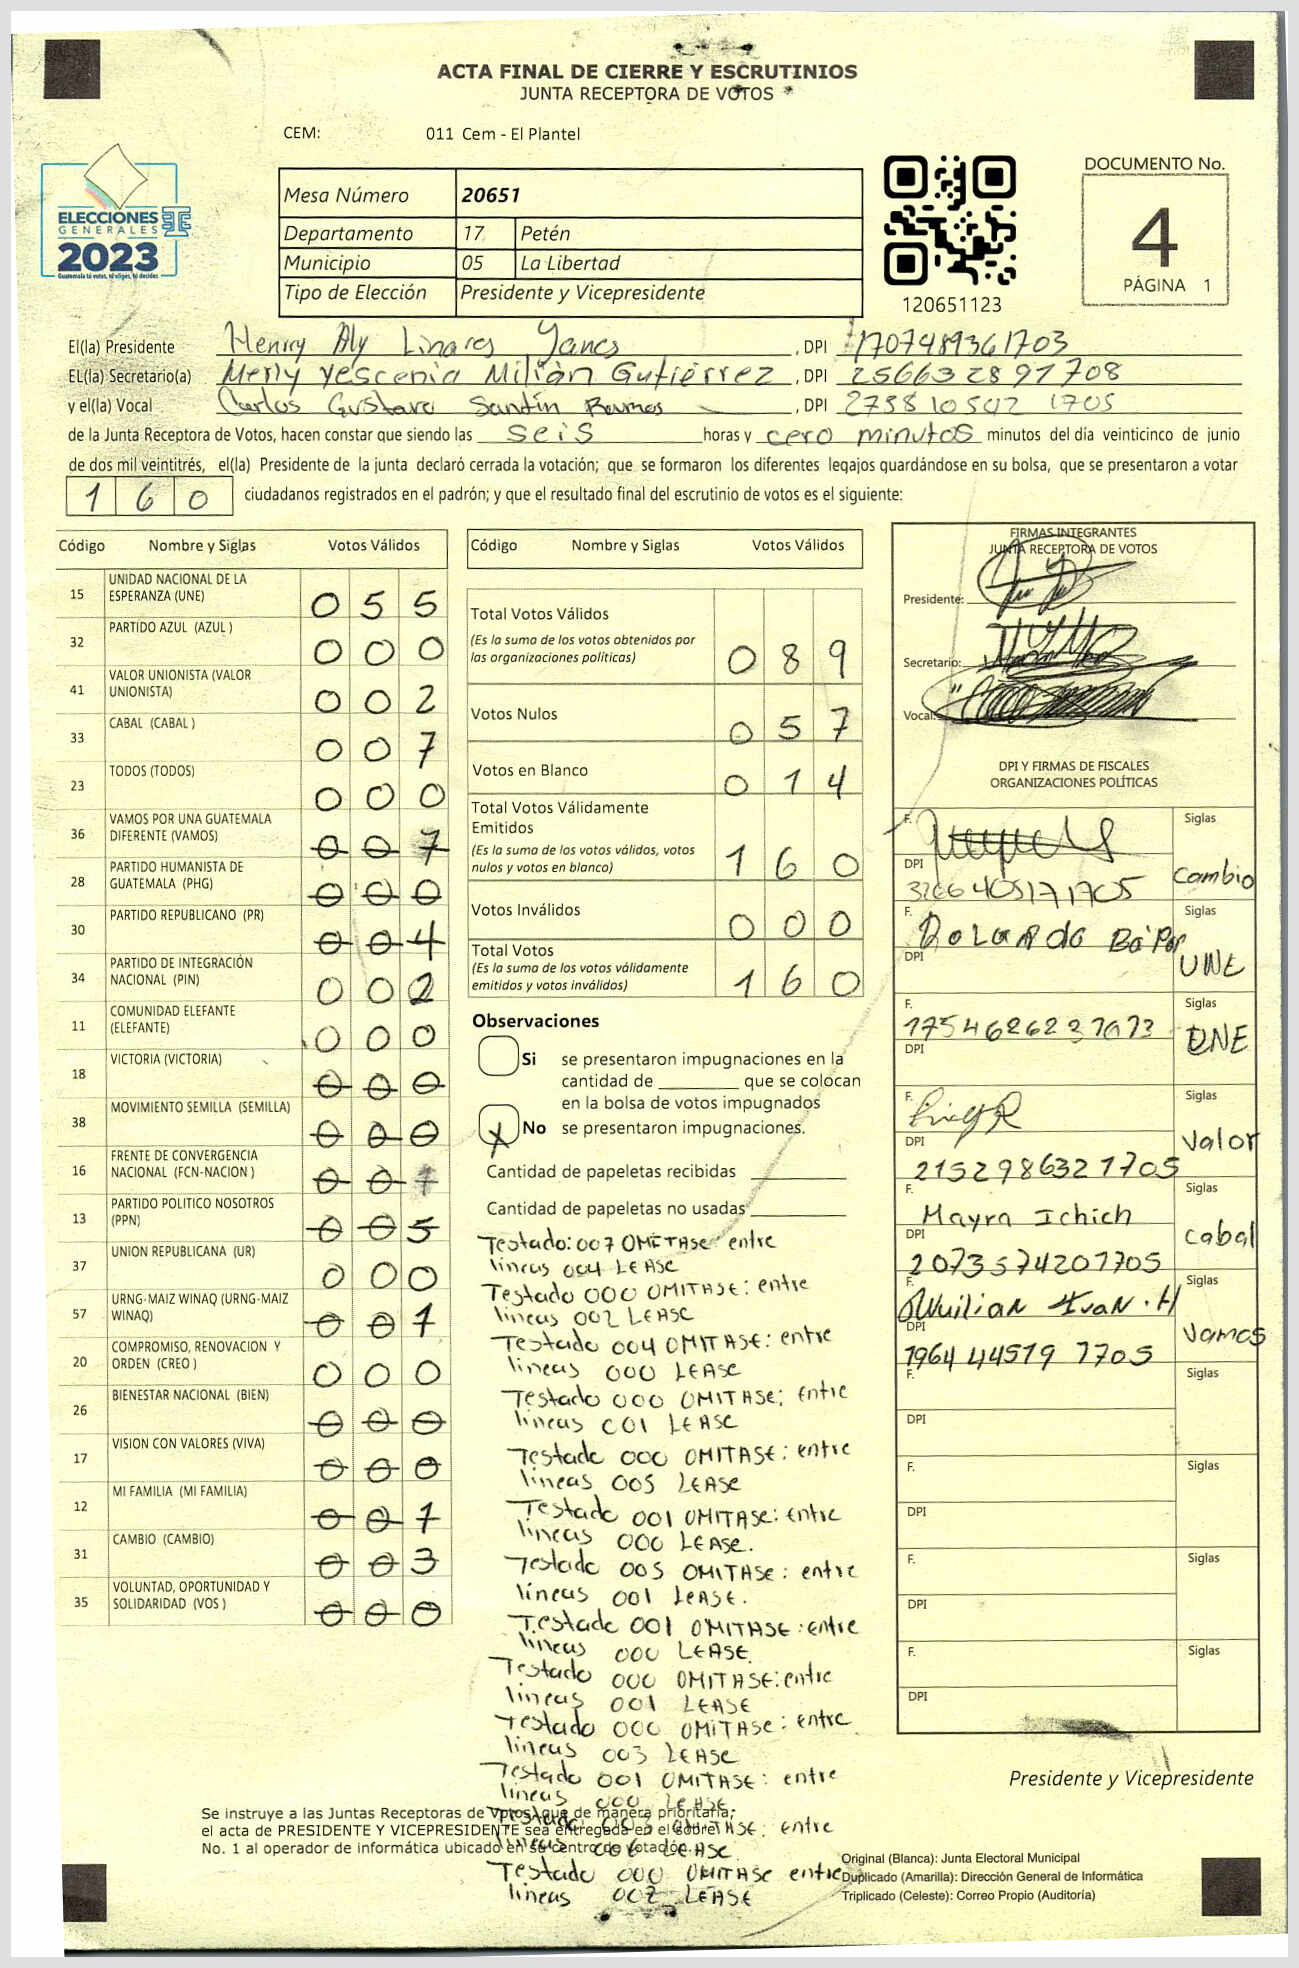 ACTA FINAL DE CIERRE Y ESCRUTINIOS
JUNTA RECEPTORA DE VOTOS
CEM: 011 Cem - El Plantel
ELECCIONES
GENERALES
2023
Guatemala tú votas, tú eliges, tú decides
Mesa Número 20651
Departamento 17 Petén
Municipio 05 La Libertad
Tipo de Elección Presidente y Vicepresidente
120651123
DOCUMENTO No.
4
PÁGINA 1
El(la) Presidente Henry Aly Linares Yanes, DPI 1707489361703
EL(la) Secretario(a) Merly Yescenia Milián Gutiérrez, DPI 2566328971708
y el(la) Vocal Carlos Gustavo Santín Ramos, DPI 2758105021705
de la Junta Receptora de Votos, hacen constar que siendo las seis horas y cero minutos minutos del día veinticinco de junio
de dos mil veintitrés, el(la) Presidente de la junta declaró cerrada la votación; que se formaron los diferentes legajos quardándose en su bolsa, que se presentaron a votar
160 ciudadanos registrados en el padrón; y que el resultado final del escrutinio de votos es el siguiente:
Código Nombre y Siglas Votos Válidos
15 UNIDAD NACIONAL DE LA ESPERANZA (UNE) 055
32 PARTIDO AZUL (AZUL) 000
41 VALOR UNIONISTA (VALOR UNIONISTA) 002
33 CABAL (CABAL) 007
23 TODOS (TODOS) 000
36 VAMOS POR UNA GUATEMALA DIFERENTE (VAMOS) 007
28 PARTIDO HUMANISTA DE GUATEMALA (PHG) 000
30 PARTIDO REPUBLICANO (PR) 004
34 PARTIDO DE INTEGRACIÓN NACIONAL (PIN) 002
11 COMUNIDAD ELEFANTE (ELEFANTE) 000
18 VICTORIA (VICTORIA) 000
38 MOVIMIENTO SEMILLA (SEMILLA) 000
16 FRENTE DE CONVERGENCIA NACIONAL (FCN-NACION) 001
13 PARTIDO POLITICO NOSOTROS (PPN) 005
37 UNION REPUBLICANA (UR) 000
57 URNG-MAIZ WINAQ (URNG-MAIZ WINAQ) 001
20 COMPROMISO, RENOVACION Y ORDEN (CREO) 000
26 BIENESTAR NACIONAL (BIEN) 000
17 VISION CON VALORES (VIVA) 000
12 MI FAMILIA (MI FAMILIA) 001
31 CAMBIO (CAMBIO) 003
35 VOLUNTAD, OPORTUNIDAD Y SOLIDARIDAD (VOS) 000
Código Nombre y Siglas Votos Válidos
Total Votos Válidos
(Es la suma de los votos obtenidos por las organizaciones políticas) 089
Votos Nulos 057
Votos en Blanco 014
Total Votos Válidamente Emitidos
(Es la suma de los votos válidos, votos nulos y votos en blanco) 160
Votos Inválidos 000
Total Votos
(Es la suma de los votos válidamente emitidos y votos inválidos) 160
Observaciones
Si se presentaron impugnaciones en la
cantidad de ________ que se colocan
en la bolsa de votos impugnados
X No se presentaron impugnaciones.
Cantidad de papeletas recibidas
Cantidad de papeletas no usadas
Testado: 007 OMITASE: entre
líneas 004 LEASE
Testado 000 OMITASE: entre
líneas 002 LEASE
Testado 004 OMITASE: entre
líneas 000 LEASE
Testado 000 OMITASE: entre
líneas 001 LEASE
Testado 000 OMITASE: entre
líneas 005 LEASE
Testado 001 OMITASE: entre
líneas 000 LEASE.
Testado 005 OMITASE: entre
líneas 001 LEASE.
Testado 001 OMITASE: entre
líneas 000 LEASE.
Testado 000 OMITASE: entre
líneas 001 LEASE
Testado 000 OMITASE: entre
líneas 003 LEASE
Testado 001 OMITASE: entre
líneas 000 LEASE
Testado 003 OMITASE: entre
líneas 006 LEASE
Testado 000 OMITASE entre
líneas 002 LEASE
FIRMAS INTEGRANTES
JUNTA RECEPTORA DE VOTOS
Presidente:
Secretario:
Vocal:
DPI Y FIRMAS DE FISCALES
ORGANIZACIONES POLÍTICAS
F. Siglas
DPI Cambio
F. Rolando Siglas
DPI UNE
F. Siglas
DPI UNE
F. Siglas
DPI 2152986321705 Valor
F. Mayra Ichich Siglas
DPI 2073574201705 cabal
F. Wuilian Ivan. H Siglas
DPI 1964445191705 Vamos
F. Siglas
DPI
F. Siglas
DPI
F. Siglas
DPI
F. Siglas
DPI
Presidente y Vicepresidente
Se instruye a las Juntas Receptoras de Votos, que de manera prioritaria,
el acta de PRESIDENTE Y VICEPRESIDENTE sea entregada en el sobre
No. 1 al operador de informática ubicado en su centro de votación.
Original (Blanca): Junta Electoral Municipal
Duplicado (Amarilla): Dirección General de Informática
Triplicado (Celeste): Correo Propio (Auditoría)